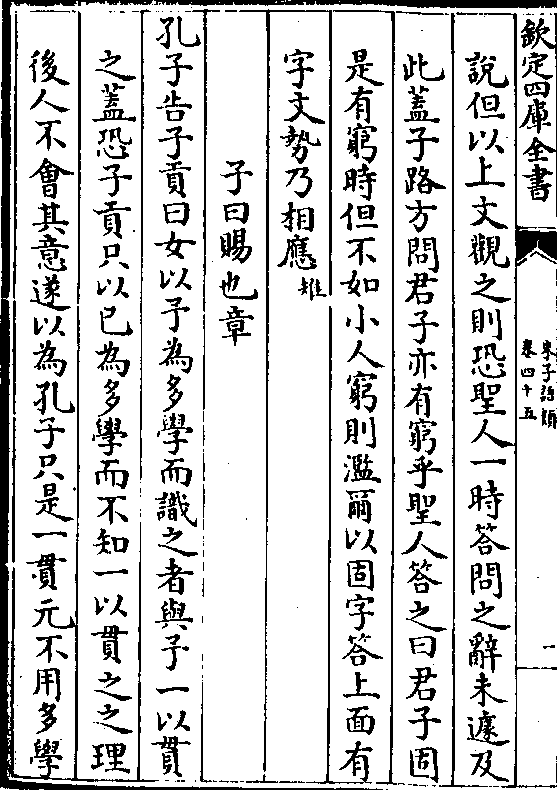 欽定四庫全書
朱子語類
卷四十五
一
說但以上文觀之則恐聖人一時答問之辭未遽及
此蓋子路方問君子亦有窮乎聖人答之曰君子固
是有窮時但不如小人窮則濫爾以固字答上面有
字文勢乃相應雉
子曰賜也章
孔子告子貢曰女以予為多學而識之者與予一以貫
之蓋恐子貢只以已為多學而不知一以貫之之理
後人不會其意遂以為孔子只是一貫元不用多學